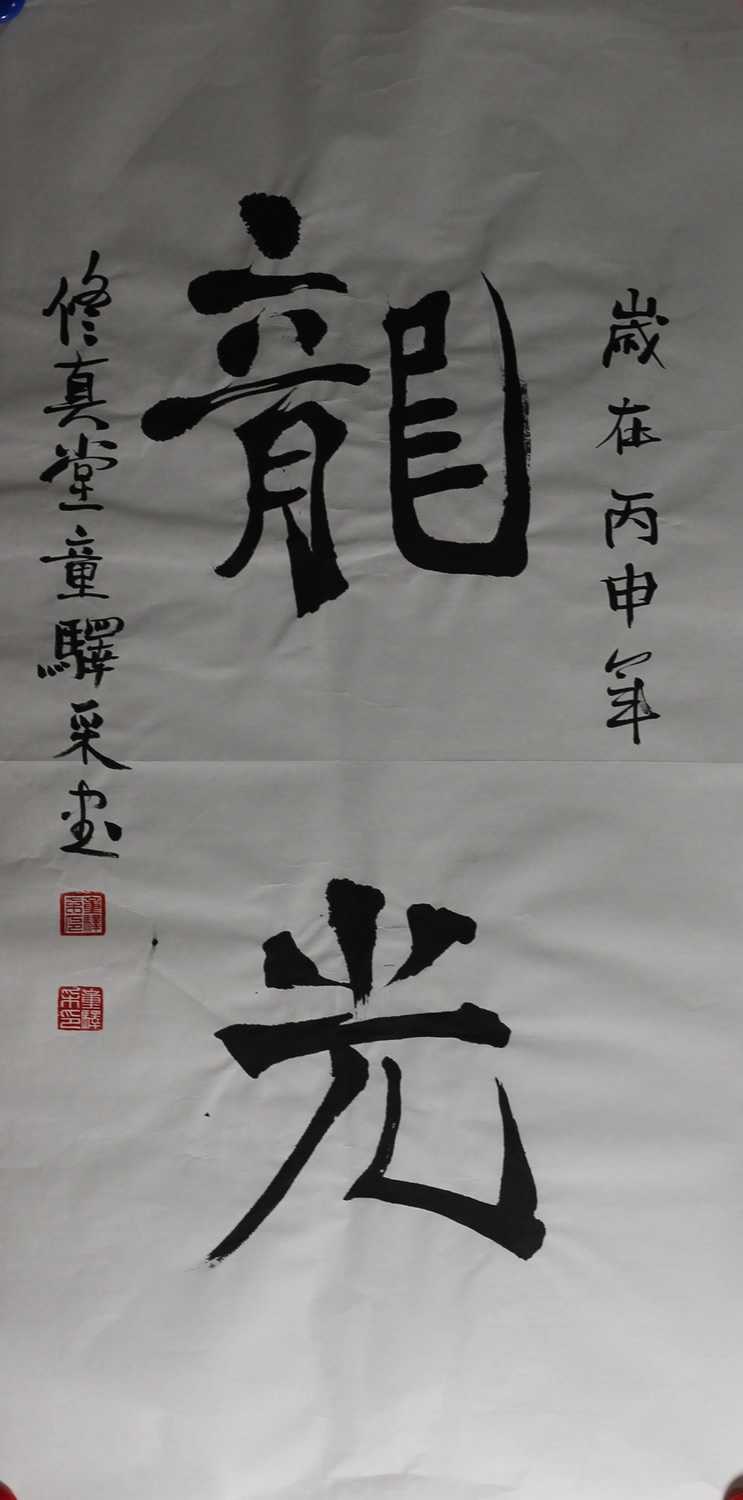 歲在丙申年
龍光
修真堂童驛采書